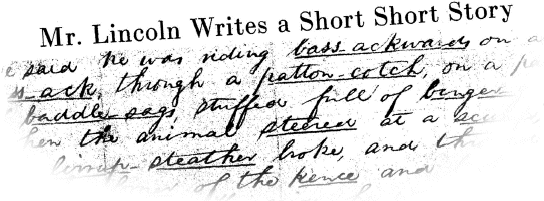 Mr. Lincoln Writes a Short Short Story
said he was riding bass-ackwards on a
-ack, through a patton-cotch, on a
baddle-sags, stuffed full of binger
the animal steered at a
stirrup-steather broke, and
of the kence and